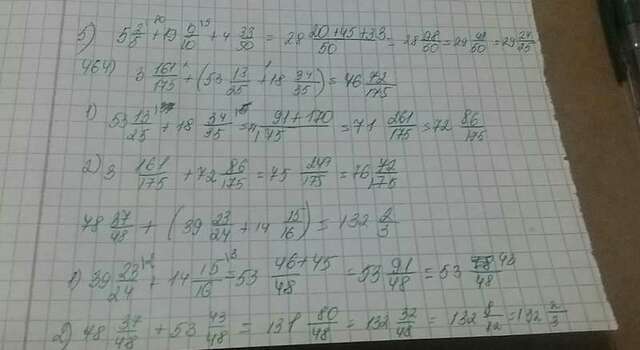 5) 5 2/5 + 19 9/10 + 4 33/50 = 28 (20+45+33)/50 = 28 98/50 = 29 48/50 = 29 24/25
464) 3 161/175 + (53 13/25 + 18 34/35) = 76 72/175
1) 53 13/25 + 18 34/35 = 71 (91+170)/175 = 71 261/175 = 72 86/175
2) 3 161/175 + 72 86/175 = 75 247/175 = 76 72/175
78 37/48 + (39 23/24 + 14 15/16) = 132 2/3
1) 39 23/24 + 14 15/16 = 53 (46+45)/48 = 53 91/48 = 53 43/48
2) 48 37/48 + 53 43/48 = 131 80/48 = 132 32/48 = 132 8/12 = 132 2/3